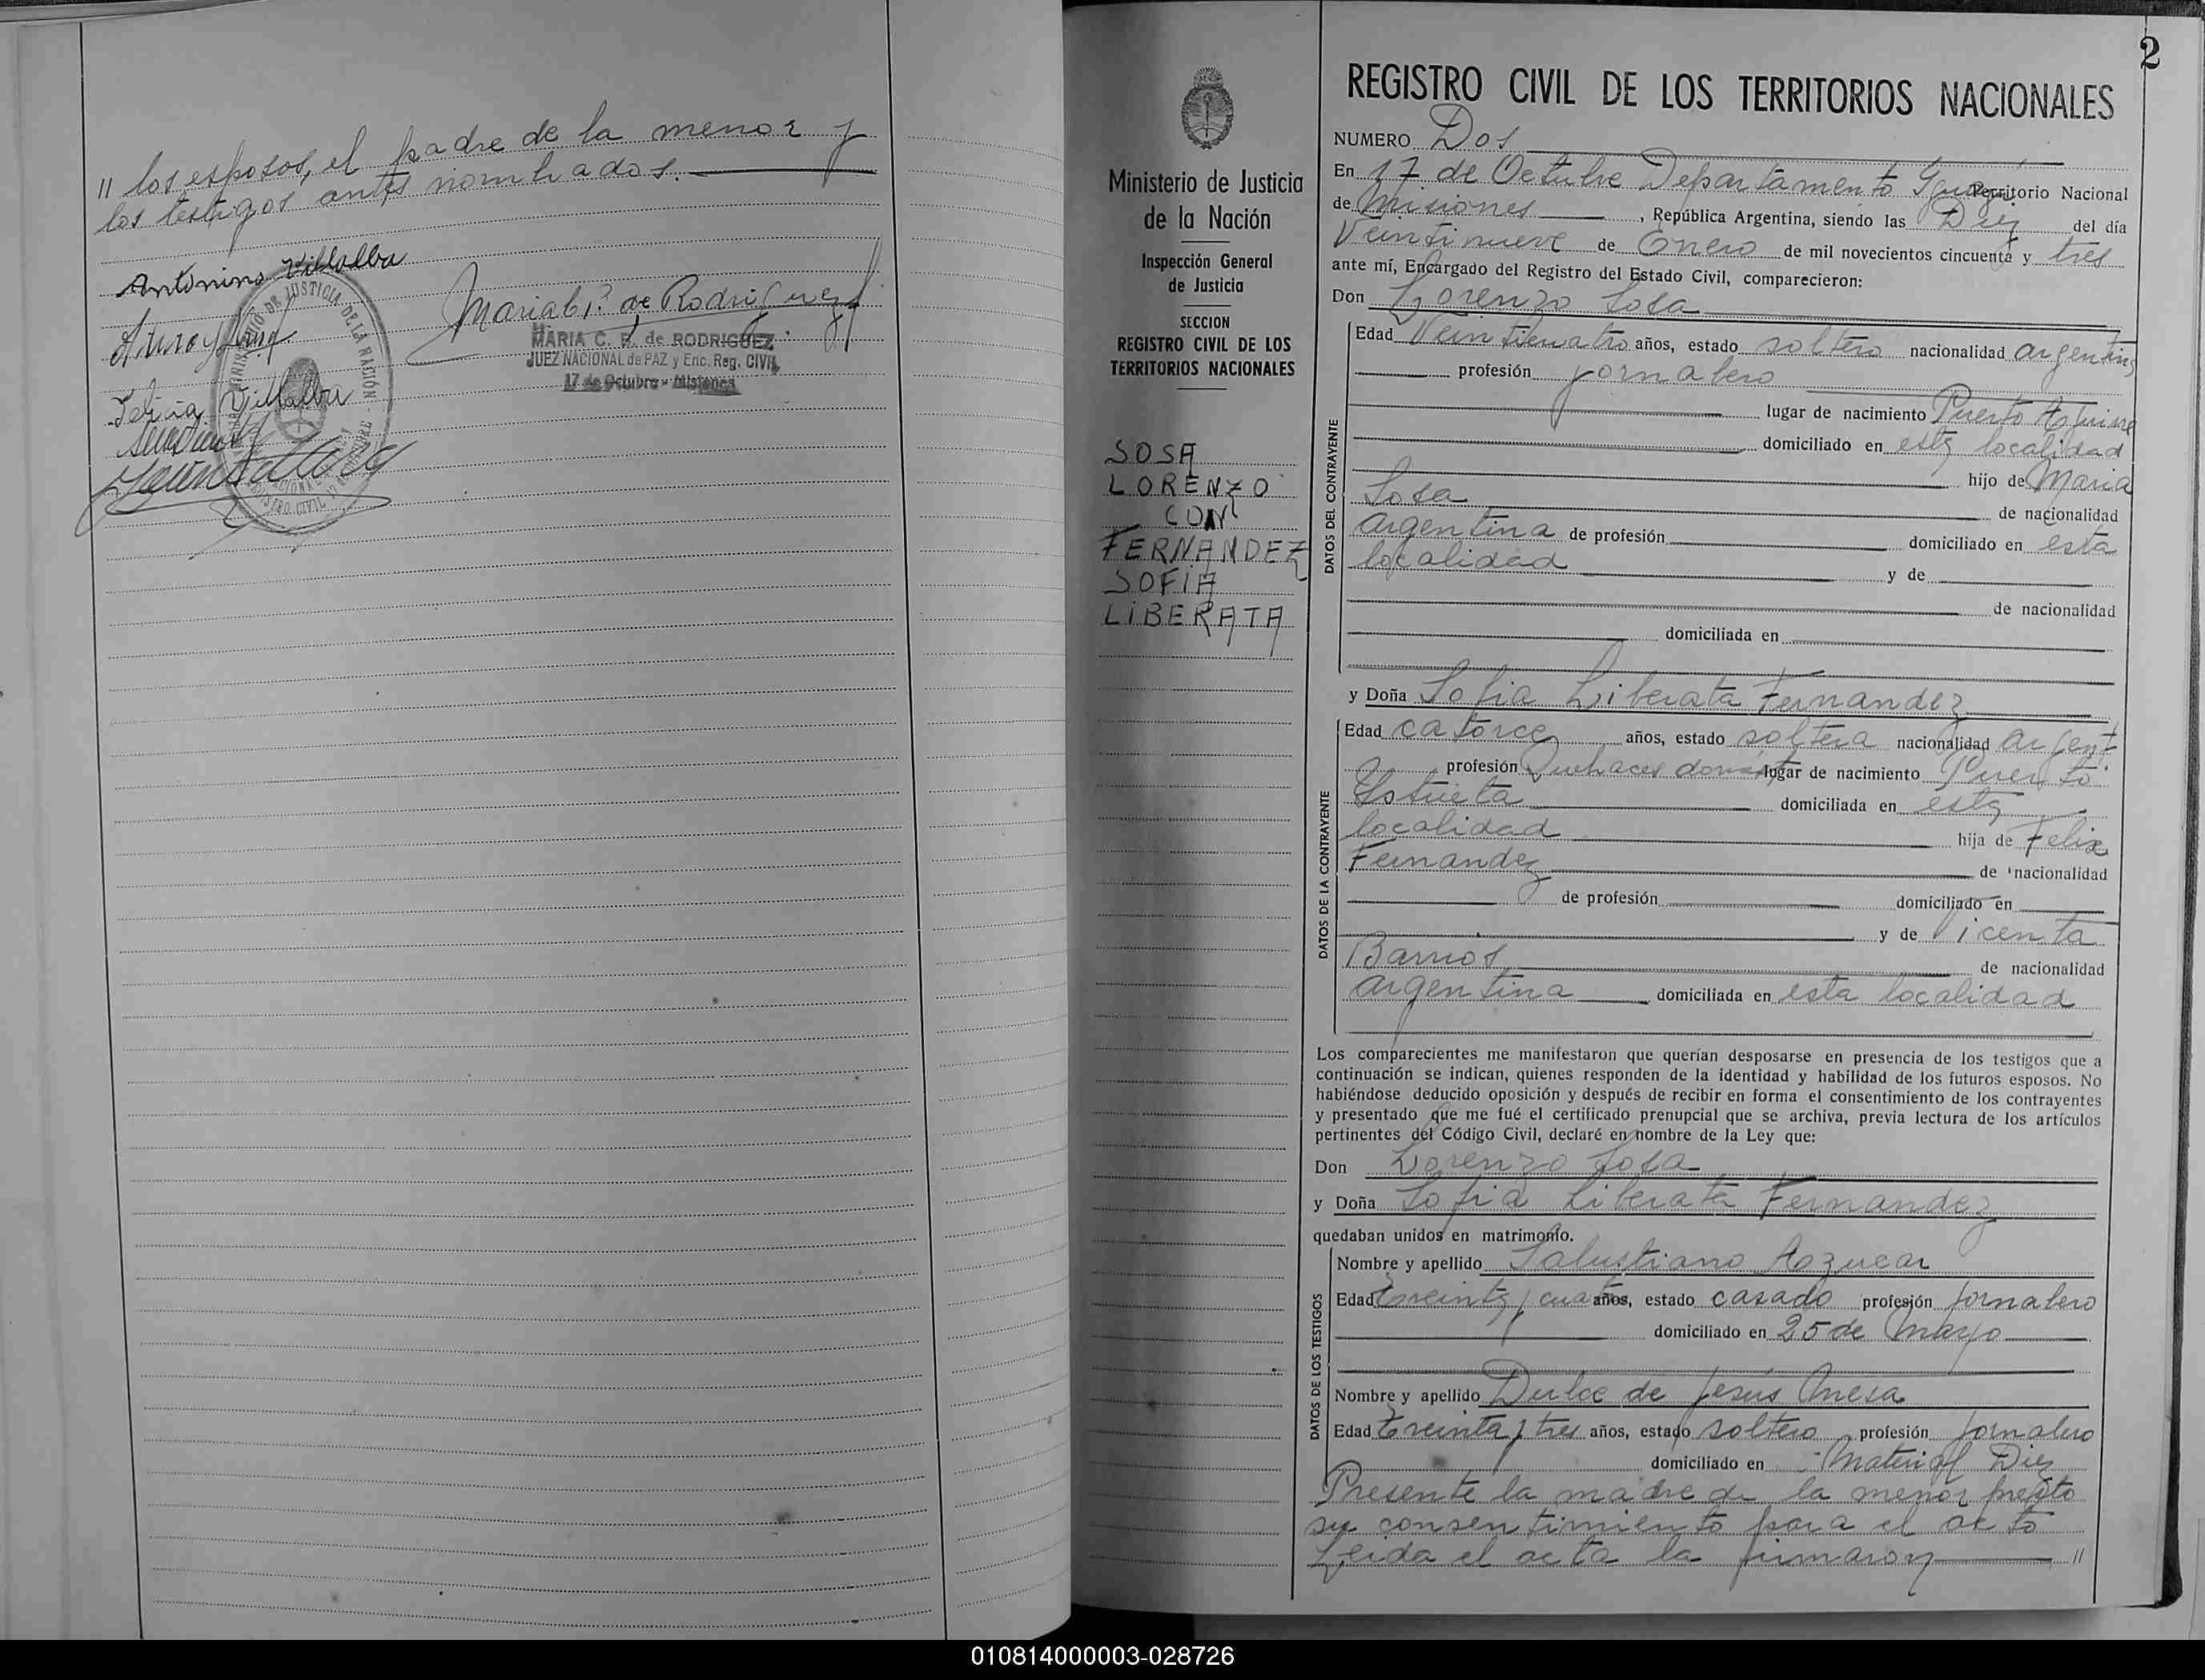 // los esposos, el padre de la menor y
los testigos antes nombrados.
Antonino Villalba
Maria C. P. de Rodriguez
MARIA C. P. de RODRIGUEZ
JUEZ NACIONAL de PAZ y Enc. Reg. CIVIL
17 de Octubre - Misiones
Felicia Villalba
MINISTERIO DE JUSTICIA DE LA NACIÓN
2
REGISTRO CIVIL DE LOS TERRITORIOS NACIONALES
Ministerio de Justicia
de la Nación
Inspección General
de Justicia
SECCION
REGISTRO CIVIL DE LOS
TERRITORIOS NACIONALES
SOSA
LORENZO
CON
FERNANDEZ
SOFIA
LIBERATA
NUMERO Dos
En 17 de Octubre Departamento Iguazú Territorio Nacional
de Misiones, República Argentina, siendo las Diez del día
Veintinueve de Enero de mil novecientos cincuenta y tres
ante mí, Encargado del Registro del Estado Civil, comparecieron:
Don Lorenzo Sosa
DATOS DEL CONTRAYENTE
Edad Veinticuatro años, estado soltero nacionalidad argentina
profesión jornalero
lugar de nacimiento Puerto
domiciliado en esta localidad
hijo de Maria
Sosa de nacionalidad
argentina de profesión domiciliado en esta
localidad y de
de nacionalidad
domiciliada en
y Doña Sofia Liberata Fernandez
DATOS DE LA CONTRAYENTE
Edad catorce años, estado soltera nacionalidad argent.
profesión Quehacer domést lugar de nacimiento Puerto
domiciliada en esta
localidad hija de Felix
Fernandez de nacionalidad
de profesión domiciliado en
y de Vicenta
Barrios de nacionalidad
argentina domiciliada en esta localidad
Los comparecientes me manifestaron que querían desposarse en presencia de los testigos que a
continuación se indican, quienes responden de la identidad y habilidad de los futuros esposos. No
habiéndose deducido oposición y después de recibir en forma el consentimiento de los contrayentes
y presentado que me fué el certificado prenupcial que se archiva, previa lectura de los artículos
pertinentes del Código Civil, declaré en nombre de la Ley que:
Don Lorenzo Sosa
y Doña Sofia Liberata Fernandez
quedaban unidos en matrimonio.
DATOS DE LOS TESTIGOS
Nombre y apellido Salustiano Azucar
Edad treinta y cuat años, estado casado profesión jornalero
domiciliado en 25 de Mayo
Nombre y apellido Dulce de Jesús Mesa
Edad treinta y tres años, estado soltero profesión jornalero
domiciliado en Material Diez
Presente la madre de la menor presto
su consentimiento para el acto
Leida el acta la firmaron //
010814000003-028726